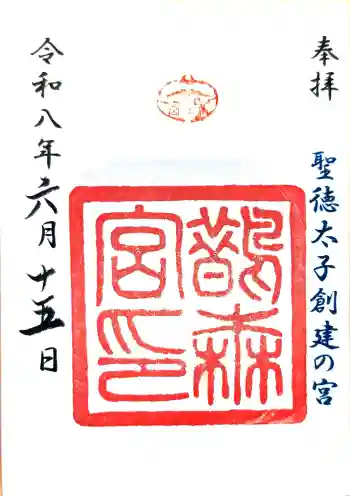 奉拝
聖徳太子創建の宮
鵲森
宮印
令和八年六月十五日